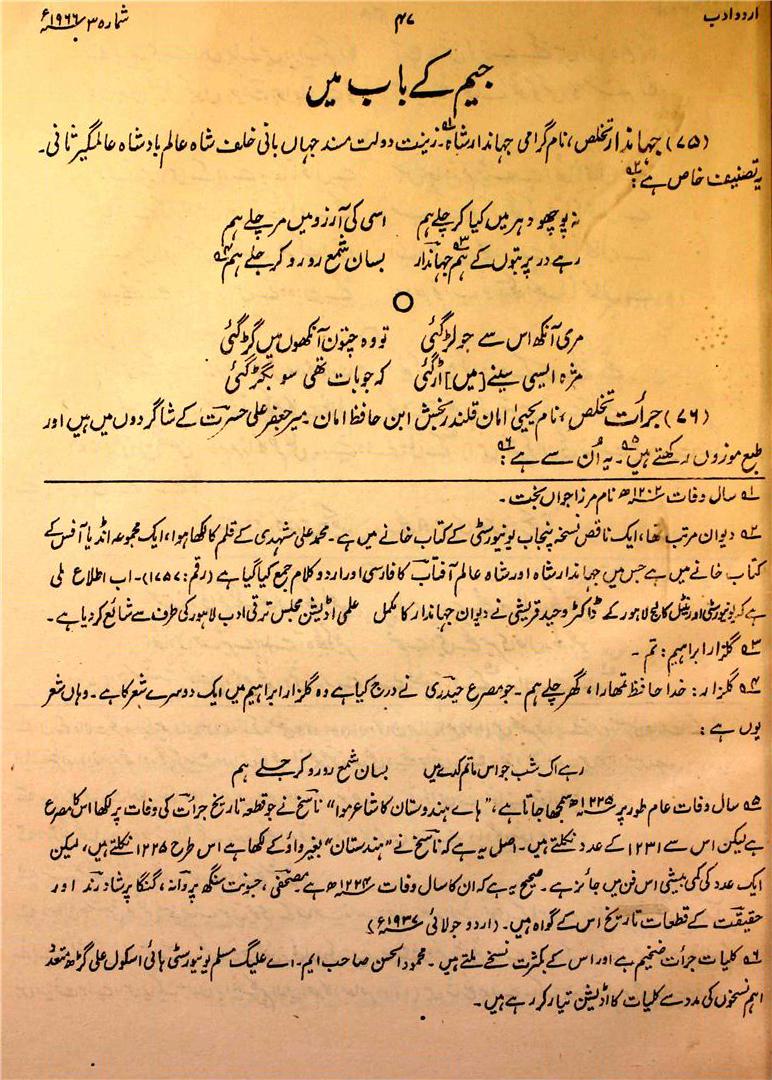 اردو ادب ۴۷ شمارہ ۳ ۱۹۶۶ء
جیم کے باب میں
(۷۵) جہاندار تخلص، نام گرامی جہاندار شاہ۱۔ زینت دولت مند جہاں بانی خلف شاہ عالم بادشاہ عالمگیر ثانی۔
یہ تصنیف خاص ہے۲:
نہ پوچھو دہر میں کیا کر چلے ہم اسی کی آرزو میں مر چلے ہم
رہے در پر بتوں کے ہم۳ جہاندار بسان شمع رو رو کر جلے ہم۴
مری آنکھ اس سے جو لڑ گئی تو وہ چتون آنکھوں میں گڑ گئی
مژہ ایسی سینے [میں] اڑ گئی کہ جو بات تھی سو بگڑ گئی
(۷۶) جرأت تخلص، نام یحییٰ امان قلندر بخش ابن حافظ امان۔ میر جعفر علی حسرت کے شاگردوں میں ہیں اور
طبع موزوں رکھتے ہیں۵۔ یہ اُن سے ہے۶:
۱ سال وفات ۱۲۰۲ھ نام مرزا جواں بخت۔
۲ دیوان مرتب تھا، ایک ناقص نسخہ پنجاب یونیورسٹی کے کتاب خانے میں ہے۔ محمد علی مشہدی کے قلم کا لکھا ہوا، ایک مجموعہ انڈیا آفس کے
کتاب خانے میں ہے جس میں جہاندار شاہ اور شاہ عالم آفتاب کا فارسی اور اردو کلام جمع کیا گیا ہے (رقم: ۱۷۵۷)۔ اب اطلاع ملی
ہے کہ یونیورسٹی اورینٹل کالج لاہور کے ڈاکٹر وحید قریشی نے دیوان جہاندار کا مکمل علمی اڈیشن مجلس ترقی ادب لاہور کی طرف سے شائع کر دیا ہے۔
۳ گلزار ابراہیم: تم۔
۴ گلزار: خدا حافظ تمھارا، گھر چلے ہم۔ جو مصرع حیدری نے درج کیا ہے وہ گلزار ابراہیم میں ایک دوسرے شعر کا ہے۔ وہاں شعر
یوں ہے:
رہے اک شب جو اس ماتم کدے میں بسان شمع رو رو کر جلے ہم
۵ سال وفات عام طور پر ۱۲۲۵ھ سمجھا جاتا ہے، "ہائے ہندوستان کا شاعر موا" ناسخ نے جو قطعہ تاریخ جرأت کی وفات پر لکھا اس کا مصرع
ہے لیکن اس سے ۱۲۳۱ کے عدد نکلتے ہیں۔ اصل یہ ہے کہ ناسخ نے "ہندستان" بغیر واؤ کے لکھا ہے اس طرح ۱۲۲۵ نکلتے ہیں، لیکن
ایک عدد کی کمی بیشی اس فن میں جائز ہے۔ صحیح یہ ہے کہ ان کا سال وفات ۱۲۲۴ھ ہے مصحفی، جسونت سنگھ پروانہ، گنگا پرشاد رند اور
حقیقت کے قطعات تاریخ اس کے گواہ ہیں۔ (اردو جولائی ۱۹۳۷ء)
۶ کلیات جرأت ضخیم ہے اور اس کے بکثرت نسخے ملتے ہیں۔ محمود الحسن صاحب ایم۔ اے علیگ مسلم یونیورسٹی ہائی اسکول علی گڑھ متعدد
اہم نسخوں کی مدد سے کلیات کا اڈیشن تیار کر رہے ہیں۔